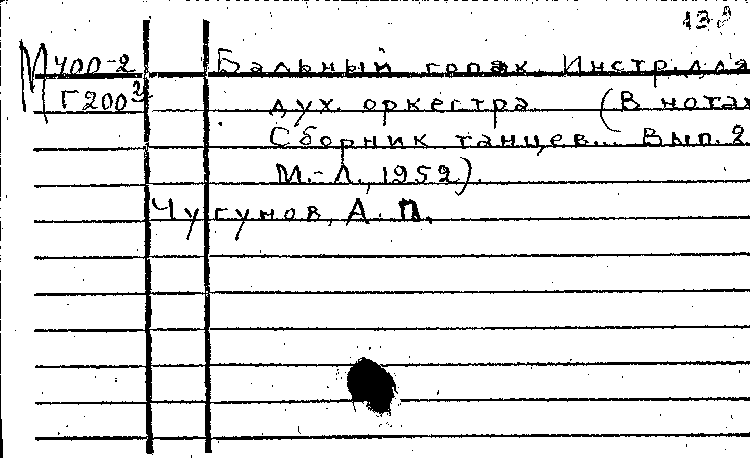 138
М 400-2 Бальный гопак. Инстр. для
Г 200² дух. оркестра (В нотах
Сборник танцев... Вып. 2.
М.-Л., 1952).
Чугунов, А. П.